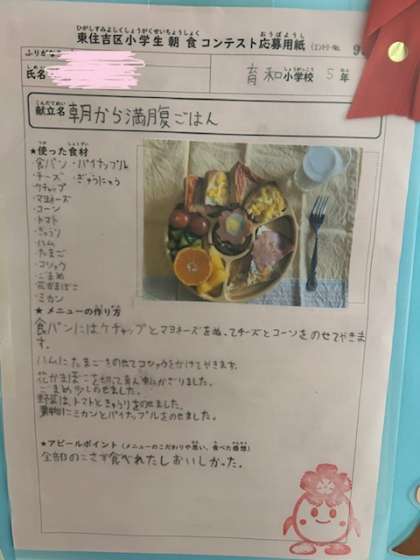 ひがしすみよしくしょうがくせいちょうしょく おうぼようし
東住吉区小学生朝食コンテスト応募用紙
ふりがな
氏名
育和小学校 5年
こんだてめい
献立名 朝から満腹ごはん
★使った食材
食パン ・パイナップル
・チーズ ・ぎゅうにゅう
・ケチャップ
・マヨネーズ
・コーン
・トマト
・きゅうり
・ハム
・たまご
・コショウ
・ごまめ
・花かまぼこ
・ミカン
★メニューの作り方
食パンにはケチャップとマヨネーズをぬってチーズとコーンをのせてやきます。
ハムにたまごをのせてコショウをかけてやきます。
花かまぼこを切って真ん中にかざりました。
ごまめ少しのせました。
野菜は、トマトときゅうりをのせました。
果物にミカンとパイナップルをのせました。
★アピールポイント(メニューのこだわりや思い、食べた感想)
全部のこさず食べれたしおいしかった。